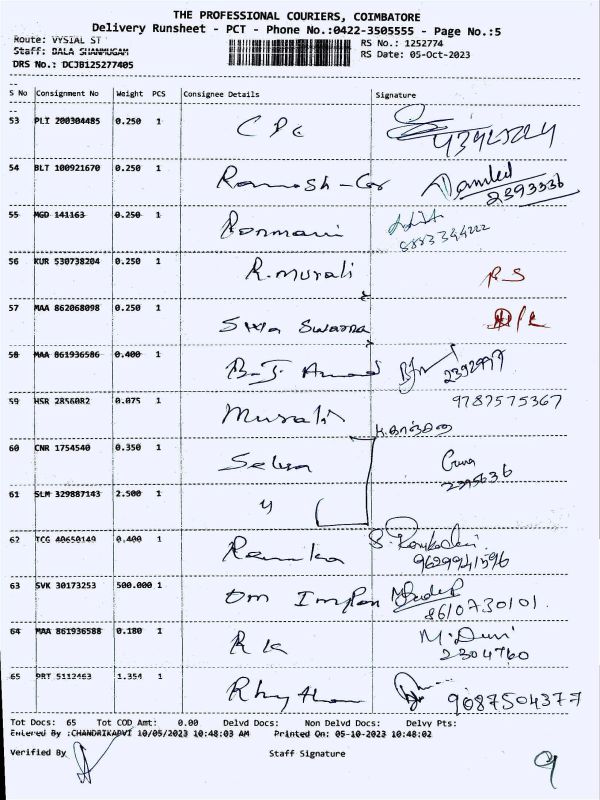 THE PROFESSIONAL COURIERS, COIMBATORE
Delivery Runsheet - PCT - Phone No.:0422-3505555 - Page No.:5
Route: VYSIAL ST
RS No.: 1252774
Staff: BALA SHANMUGAM
RS Date: 05-Oct-2023
DRS No.: DCJB125277405
S No Consignment No Weight PCS Consignee Details Signature
53 PLI 200304485 0.250 1 C P C
54 BLT 100921670 0.250 1 Ramesh - 2393336
55 MGD 141163 0.250 1 8883344222
56 KUR 530738204 0.250 1 R. Murali R S
57 MAA 862068098 0.250 1 Siva Swarna
58 MAA 861936586 0.400 1 B. J. Anand 2392977
59 HSR 2856082 0.075 1 Murali 9787575367
60 CNR 1754540 0.350 1 Selva Guna
61 SLM 329887143 2.500 1 "
62 TCG 40650149 0.400 1 9629941596
63 SVK 30173253 500.000 1 Om Impon 8610730101.
64 MAA 861936588 0.180 1 R K M. Devi 2304760
65 PRT 5112463 1.354 1 Rhythm 9087504377
Tot Docs: 65 Tot COD Amt: 0.00 Delvd Docs: Non Delvd Docs: Delvy Pts:
Entered By :CHANDRIKADVI 10/05/2023 10:48:03 AM Printed On: 05-10-2023 10:48:02
Verified By Staff Signature
9